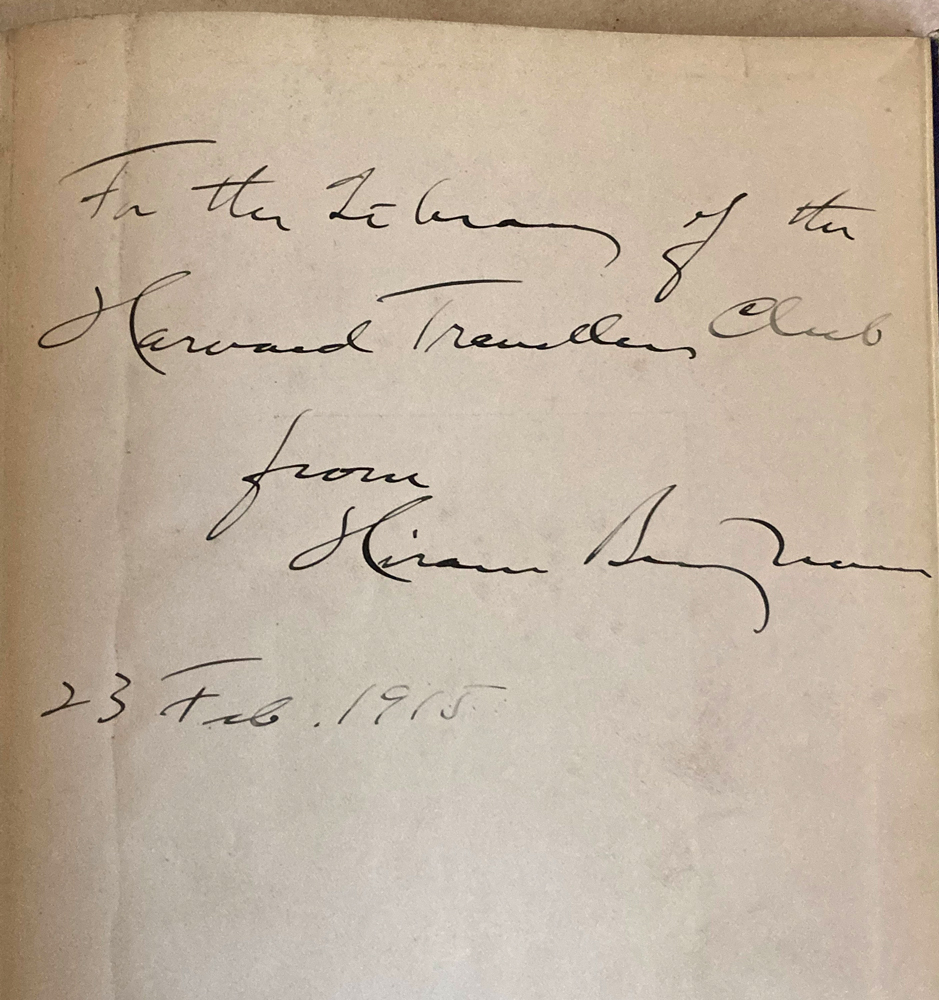 For the Library of the
Harvard Travellers Club
from
Hiram Bingham
23 Feb. 1915